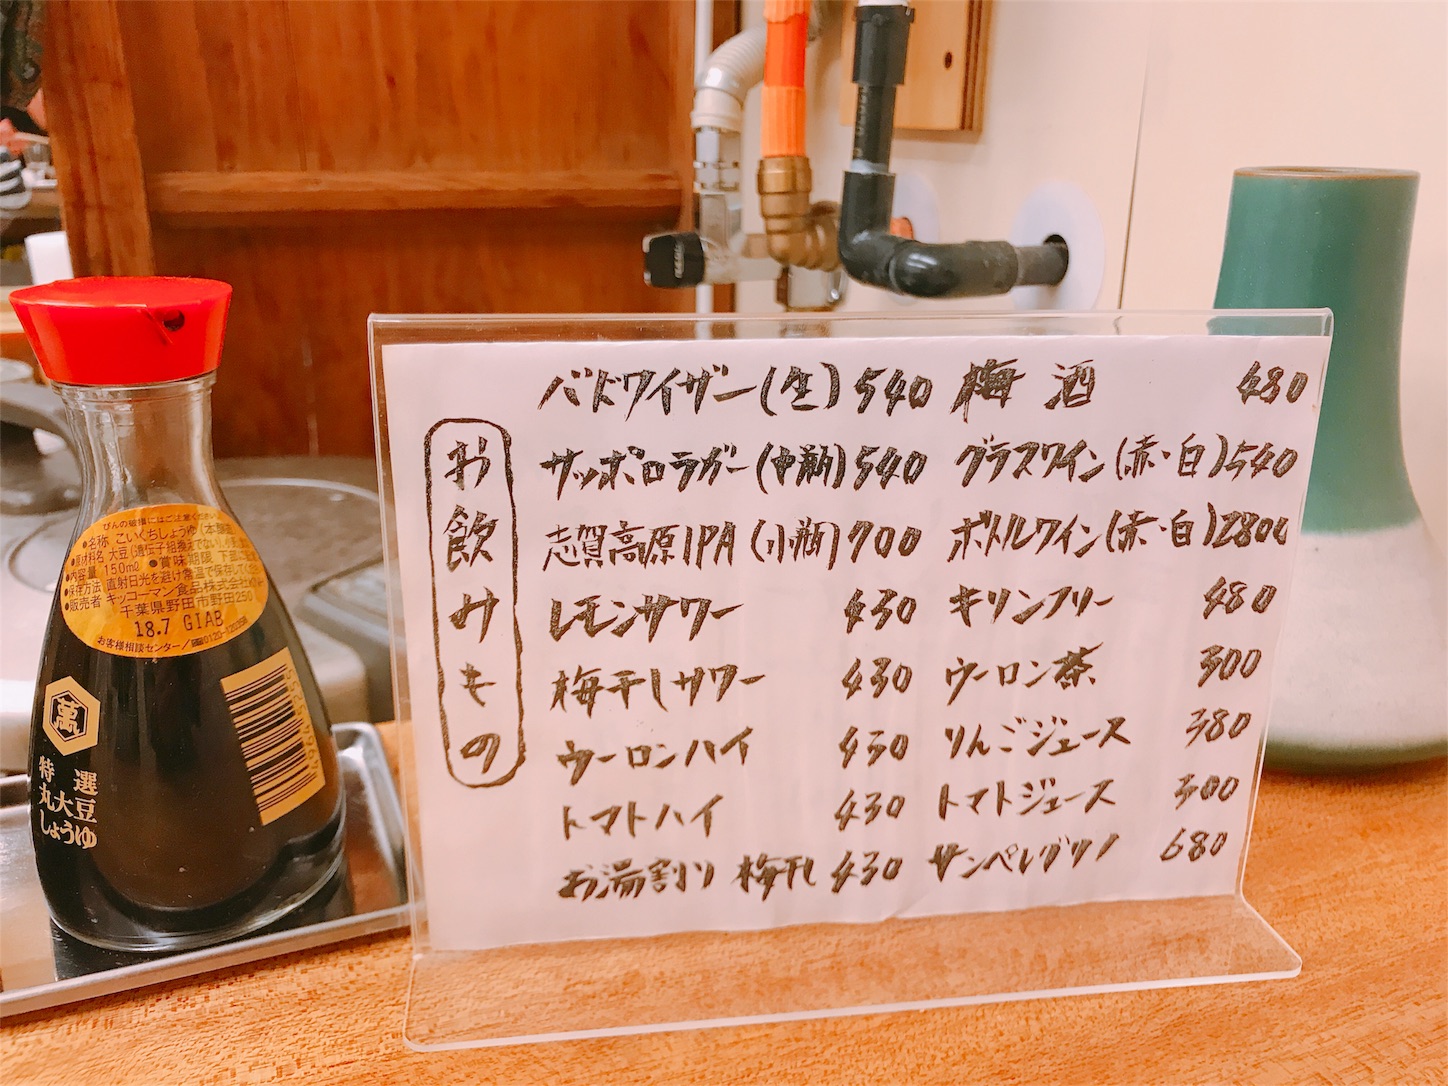 お飲みもの
バドワイザー(生) 540
サッポロラガー(中瓶) 540
志賀高原IPA(小瓶) 700
レモンサワー 430
梅干しサワー 430
ウーロンハイ 430
トマトハイ 430
お湯割り 梅干し 430
梅酒 480
グラスワイン(赤・白) 540
ボトルワイン(赤・白) 2800
キリンフリー 480
ウーロン茶 300
りんごジュース 380
トマトジュース 300
サンペレグリノ 680
びんの破損にはご注意ください
●名称 こいくちしょうゆ(本醸造)
●内容量 150ml ●賞味期限
●保存方法 直射日光を避け常温で保存してください
●販売者 キッコーマン食品株式会社
千葉県野田市野田250
18.7 GIAB
お客様相談センター/
萬
特選
丸大豆
しょうゆ